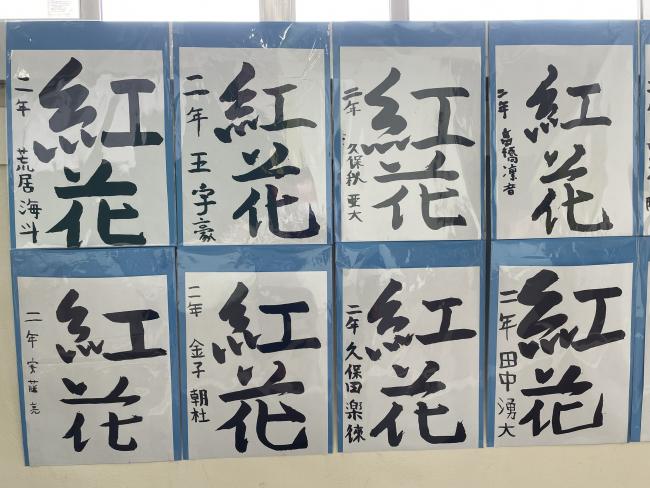 紅花
二年 荒居 海斗
紅花
二年 王 宇豪
紅花
二年 久保秋 亜大
紅花
二年 高橋凜音
紅花
二年
紅花
二年 金子 朝杜
紅花
二年 久保田 楽徠
紅花
二年 田中 湧大